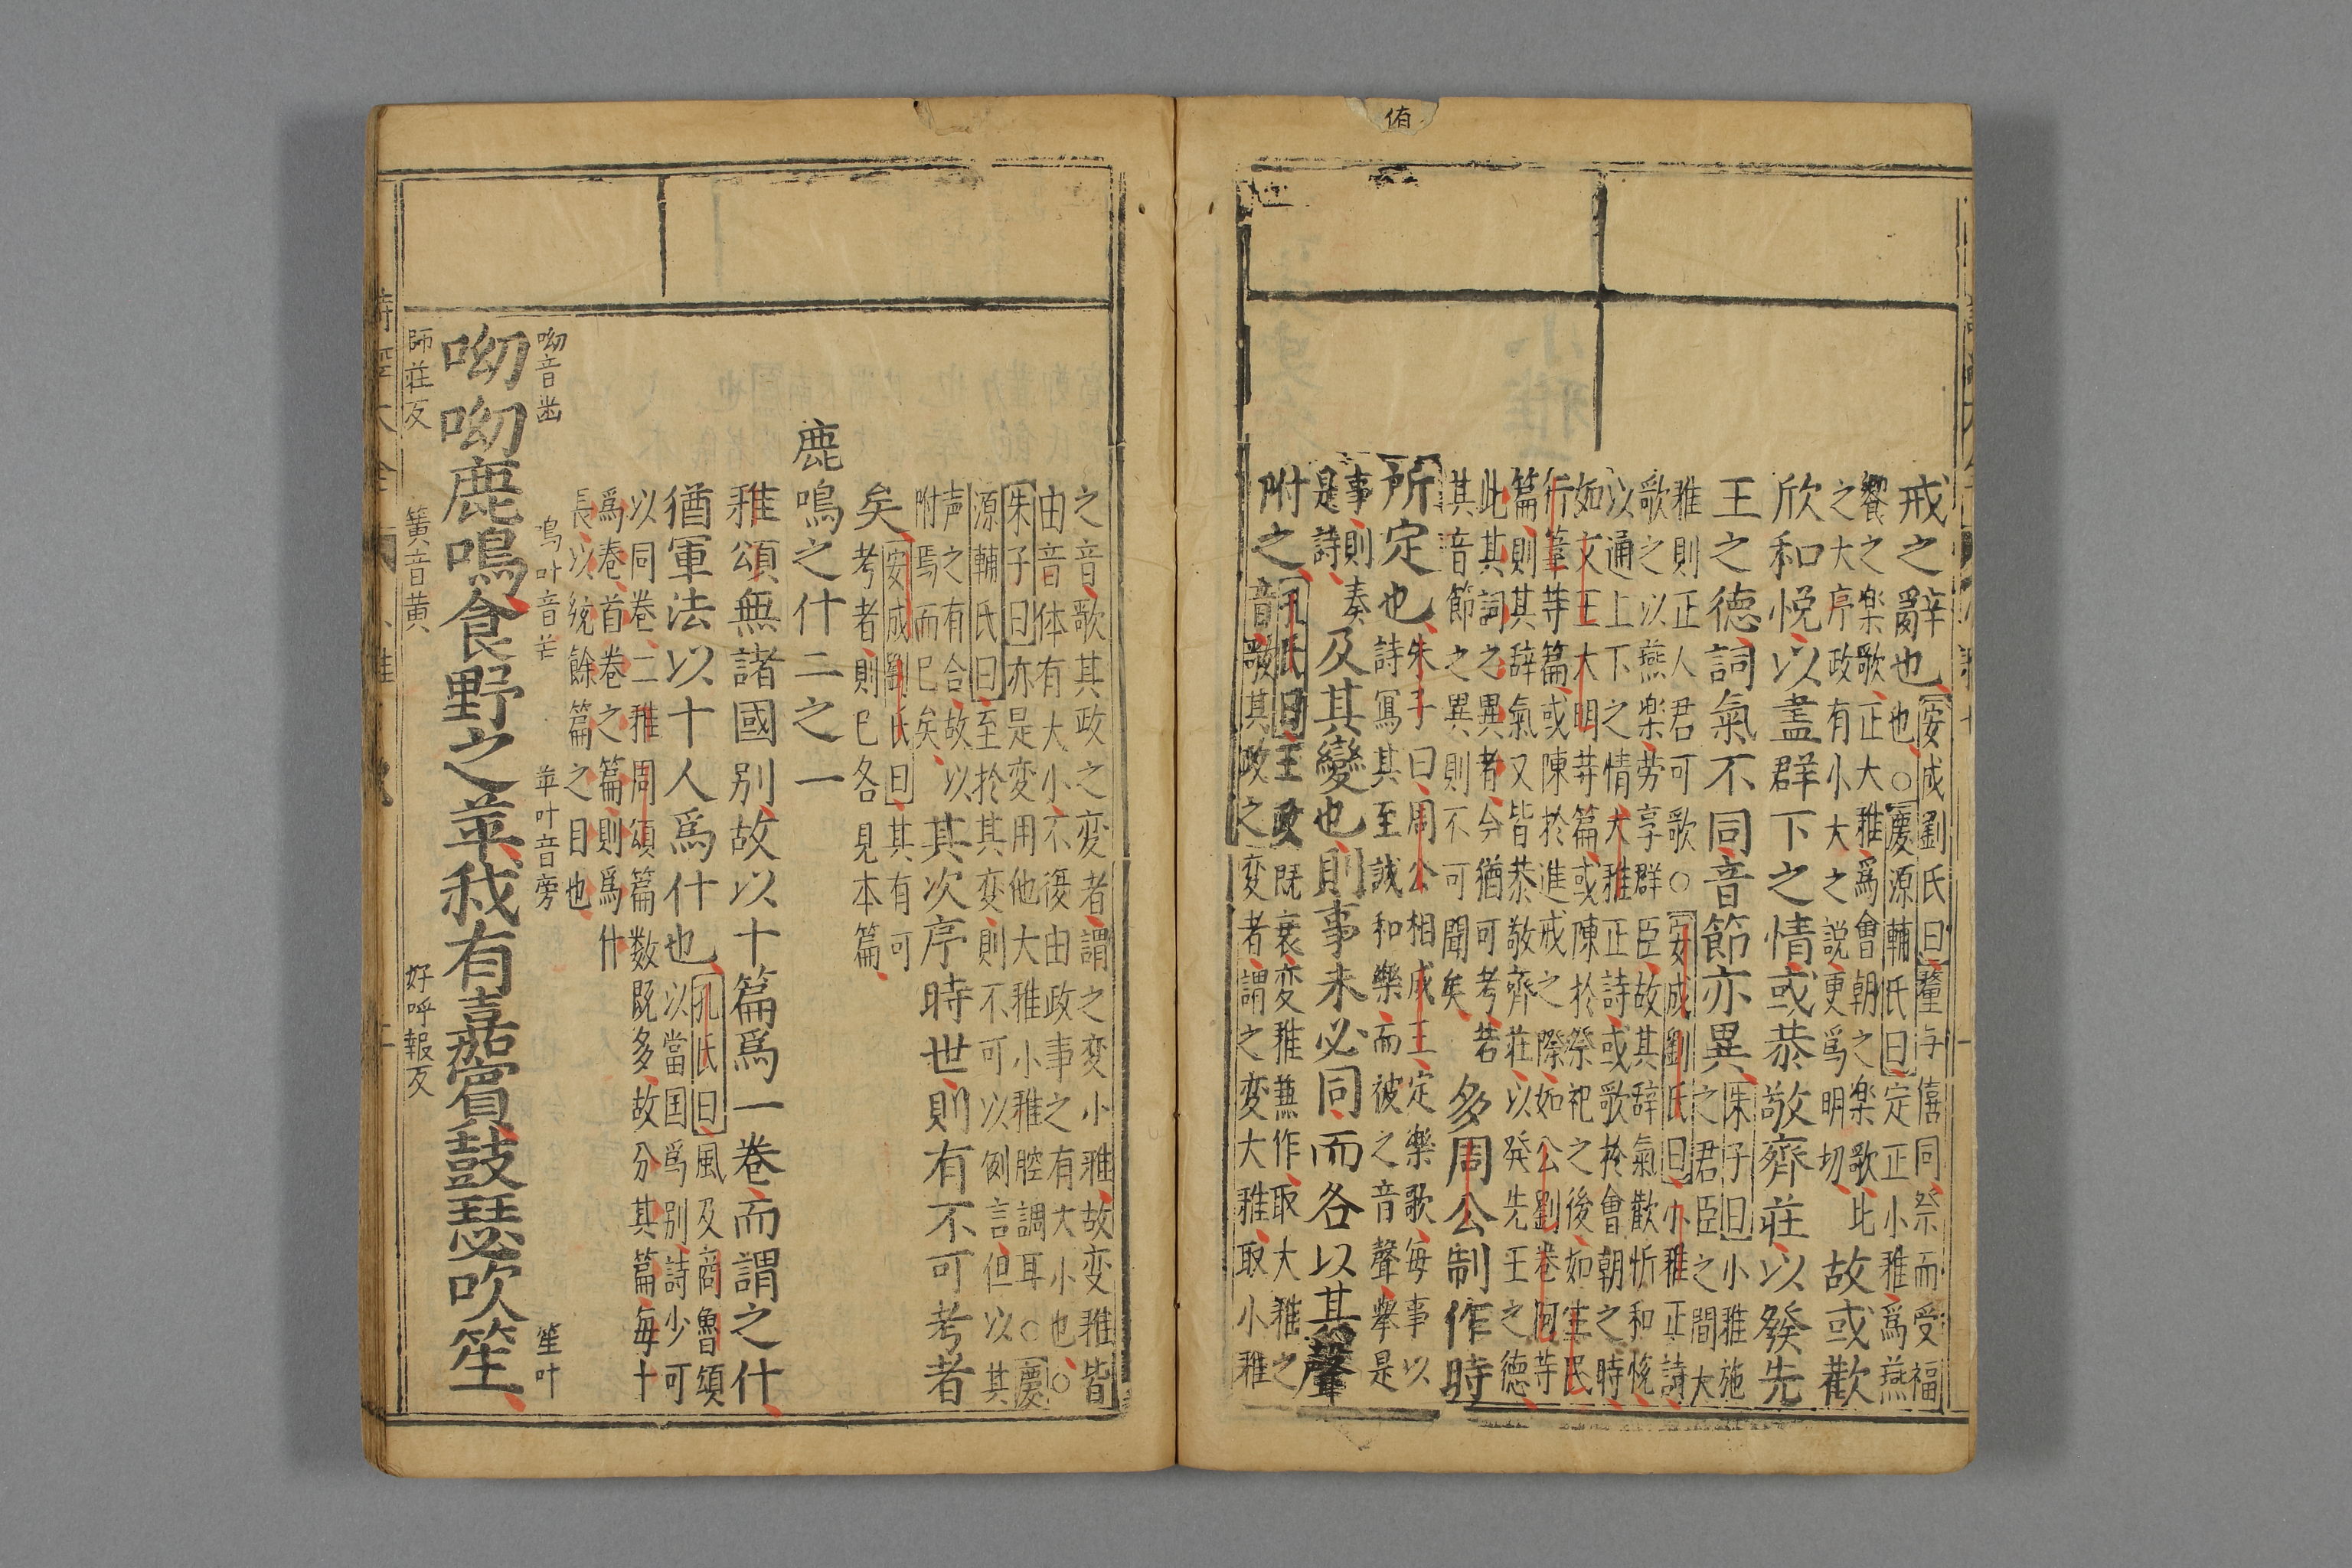 侑
戒之辭也
安成劉氏曰釐与僖同祭而受福
也○慶源輔氏曰定正小雅爲燕
饗之楽歌正大雅爲會朝之楽歌此
之大序政有小大之説更爲明切
故或歡
欣和悅以盡群下之情或恭敬齊莊以發先
王之德詞氣不同音節亦異
朱子曰小雅施
之君臣之間大
雅則正人君可歌○安成劉氏曰小雅正詩
歌之以燕楽労享群臣故其辞氣歡忻和悅
以通上下之情大雅正詩或歌於會朝之時
如文王大明等篇或陳於祭祀之後如生民
行葦等篇或陳於進戒之際如公劉卷阿等
篇則其辞氣又皆恭敬齊莊以発先王之德
此其詞之異者今猶可考若
其音節之異則不可聞矣
多周公制作時
所定也
朱子曰周公相成王定樂歌每事以
詩寫其至誠和樂而被之音聲舉是
事則奏
是詩
及其變也則事未必同而各以其聲
附之
孔氏曰王政既衰変雅兼作取大雅之
音歌其政之変者謂之変大雅取小雅
之音歌其政之変者謂之変小雅故変雅皆
由音体有大小不復由政事之有大小也○
朱子曰亦是変用他大雅小雅腔調耳○慶
源輔氏曰至於其変則不可以例言但以其
声之有合故以
附焉而已矣
其次序時世則有不可考者
矣
安成劉氏曰其有可
考者則已各見本篇
鹿鳴之什二之一
雅頌無諸國別故以十篇爲一卷而謂之什
猶軍法以十人爲什也
孔氏曰風及商魯頌
以當国爲别詩少可
以同卷二雅周頌篇数既多故分其篇每十
爲卷首卷之篇則爲什
長以統餘篇之目也
呦音幽
鳴叶音芒
苹叶音旁
笙叶
呦呦鹿鳴食野之苹我有嘉賓鼓瑟吹笙
師莊反
簧音黄
好呼報反